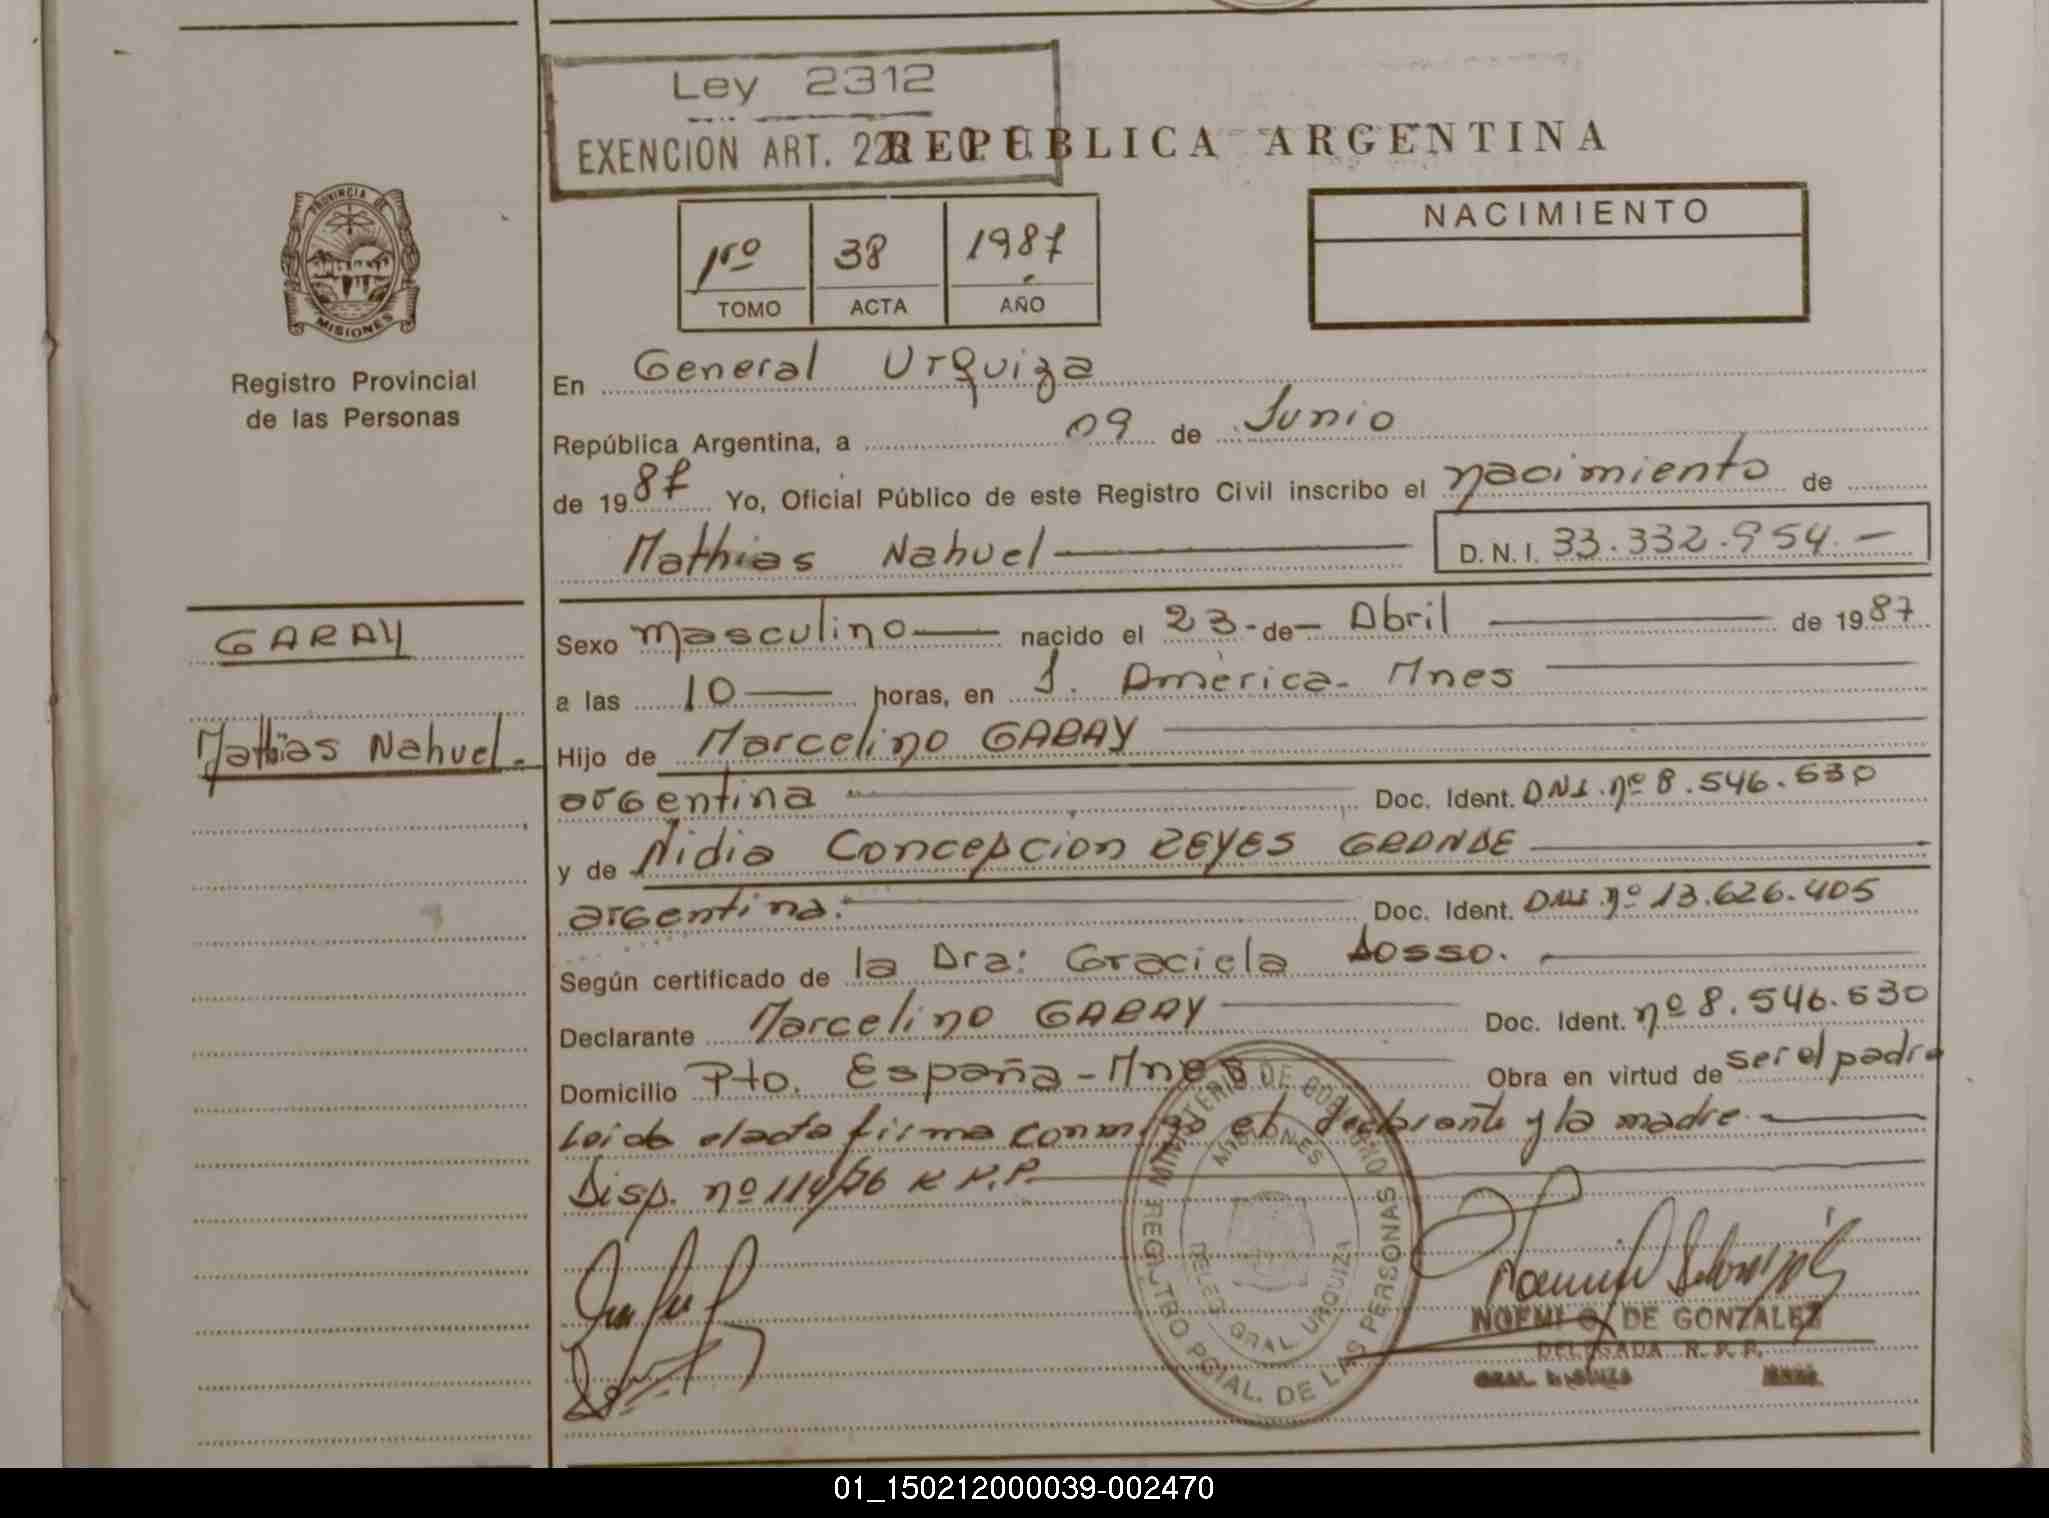 Ley 2312
EXENCION ART. 22
REPUBLICA ARGENTINA
PROVINCIA DE
MISIONES
Registro Provincial
de las Personas
1ro 38 1987
TOMO ACTA AÑO
NACIMIENTO
En General Urquiza
República Argentina, a 09 de Junio
de 1987 Yo, Oficial Público de este Registro Civil inscribo el nacimiento de
Mathias Nahuel
D.N.I. 33.332.954.-
GARAY
Mathias Nahuel.
Sexo masculino nacido el 23-de-Abril de 1987
a las 10 horas, en J. América- Mnes
Hijo de Marcelino GARAY
argentina Doc. Ident. DNI. nº 8.546.630
y de Nidia Concepcion REYES GRANDE
argentina. Doc. Ident. DNI. nº 13.626.405
Según certificado de la Dra: Graciela Dosso.
Declarante Marcelino GARAY Doc. Ident. nº 8.546.630
Domicilio Pto. España-Mnes Obra en virtud de ser el padre
Leida el acta firma conmigo el declarante y la madre
Disp. nº 114/76 R.P.P.
MINISTERIO DE GOBIERNO
MISIONES
REGISTRO PCIAL. DE LAS PERSONAS
DELEG. GRAL. URQUIZA
NOEMI G. DE GONZALEZ
DELEGADA R.P.P.
GRAL URQUIZA
01_150212000039-002470